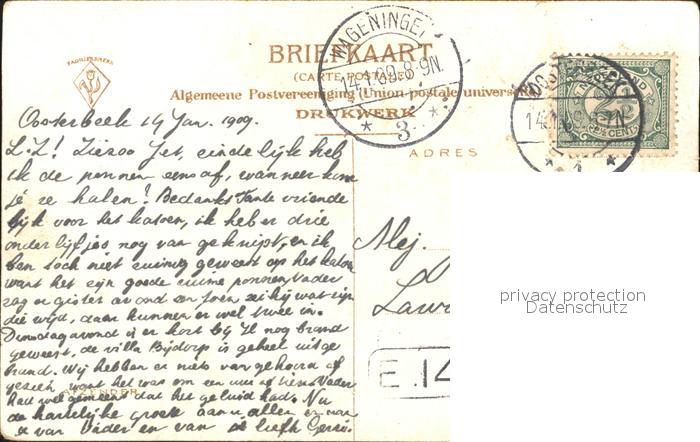 FABRIEKSMERK
BRIEFKAART
(CARTE POSTALE)
Algemeene Postvereeniging (Union postale universelle)
DRUKWERK
ADRES
WAGENINGEN
14.1.09.8-9N.
3
OOSTERBEEK
14.1.09
1
NEDERLAND
2½
CENT
Oosterbeek 14 Jan. 1909.
L. Z! Ziezoo Jet, eindelijk heb
ik de ponnen eens af, wanneer kom
je ze halen? Bedankt Tante vriende
lijk voor het katoen, ik heb er drie
onderlijfjes nog van geknipt, en ik
ben toch niet zuinig geweest op het katoen
want het zijn goede ruime ponnen. Vader
zag er gister avond een toen zei hij wat zijn
die wijd, daar kunnen er wel twee in.
Dinsdagavond is er kort bij U nog brand
geweest, de villa Bijdorp is geheel uitge
brand. Wij hebben er niets van gehoord of
gezien, want het was om een uur of tien. Vader
had wel gemeend dat het geluid had. Nu
de hartelijke groete aan u allen er van
van Vader en van je liefh Gerri.
AFZENDER
Mej.
E.14
privacy protection
Datenschutz